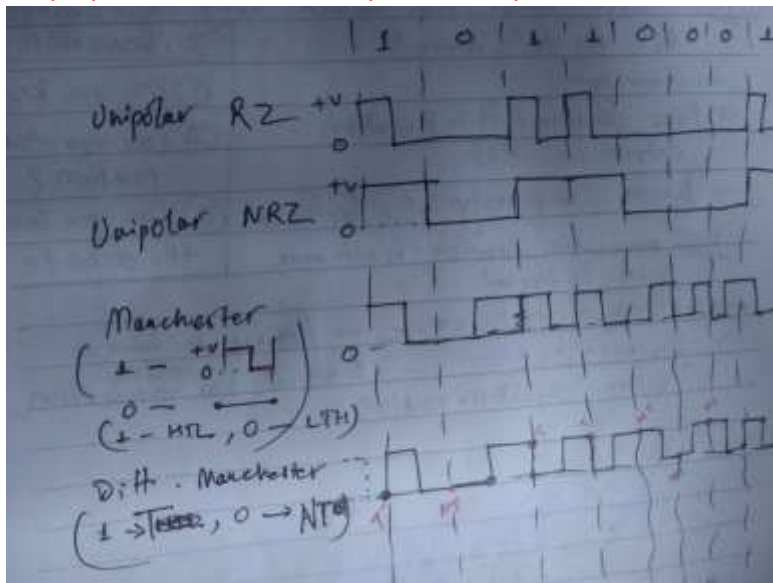 1 0 1 1 0 0 0 1
Unipolar RZ +V
0
Unipolar NRZ +V
0
Manchester
( 1 - +V
0
0 -
(1 - HTL, 0 - LTH)
0
Diff. Manchester
( 1 → , 0 → NT